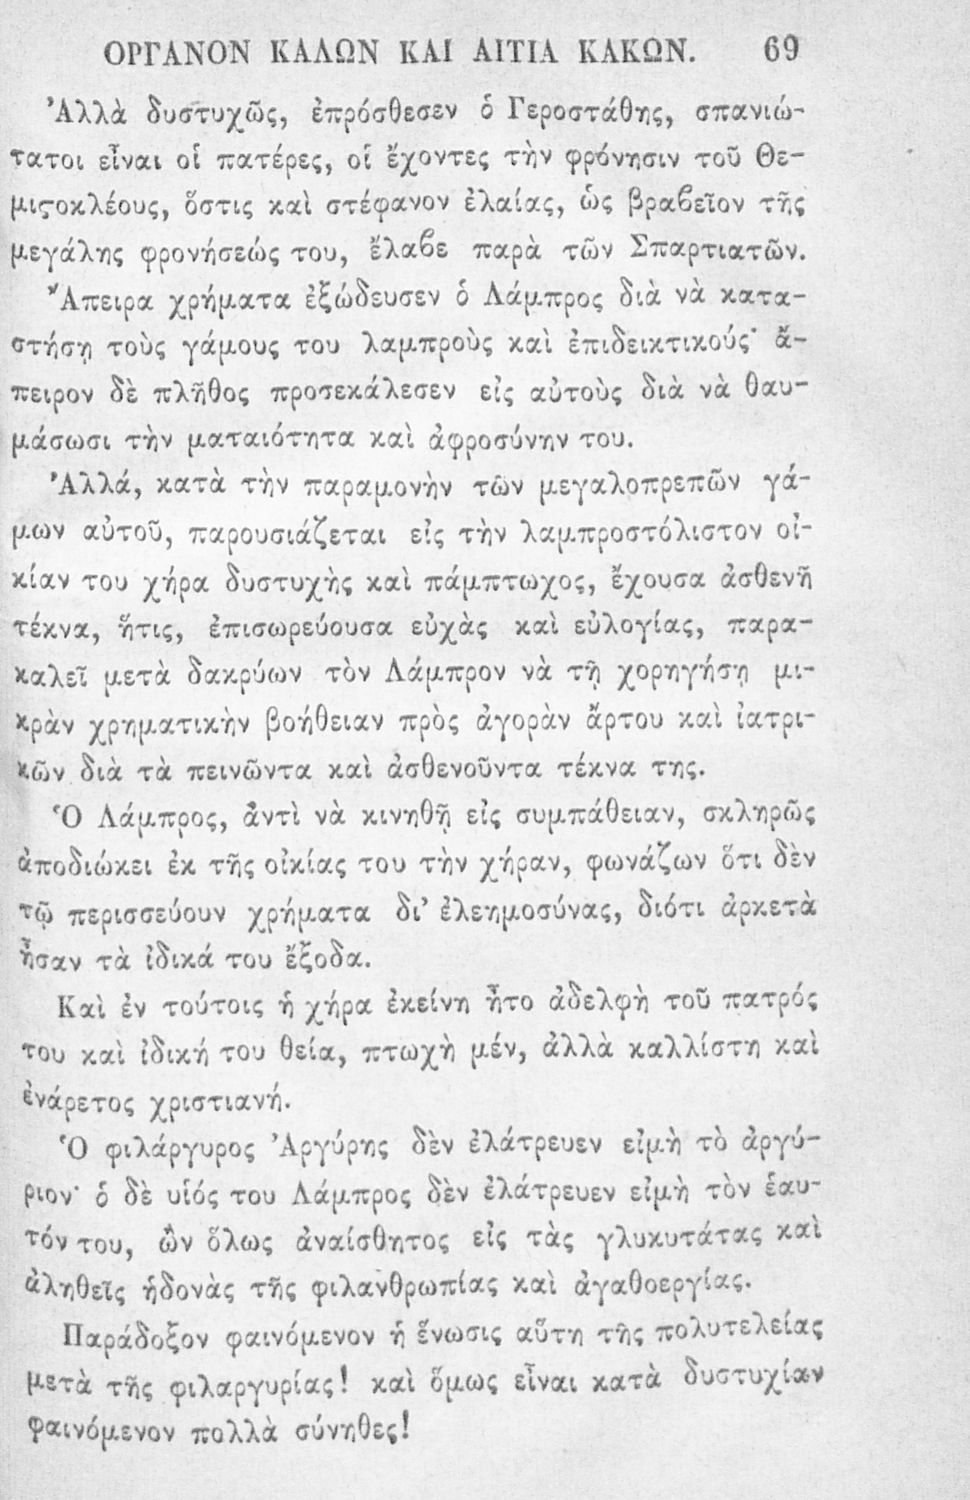 ΟΡΓΑΝΟΝ ΚΑΛΩΝ ΚΑΙ ΑΙΤΙΑ ΚΑΚΩΝ. 69
Ἀλλὰ δυστυχῶς, ἐπρόσθεσεν ὁ Γεροστάθης, σπανιώ-
τατοι εἶναι οἱ πατέρες, οἱ ἔχοντες τὴν φρόνησιν τοῦ Θε-
μιϛοκλέους, ὅστις καὶ στέφανον ἐλαίας, ὡς βραβεῖον τῆς
μεγάλης φρονήσεώς του, ἔλαβε παρὰ τῶν Σπαρτιατῶν.
Ἄπειρα χρήματα ἐξώδευσεν ὁ Λάμπρος διὰ νὰ κατα-
στήσῃ τοὺς γάμους του λαμπροὺς καὶ ἐπιδεικτικούς· ἄ-
πειρον δὲ πλῆθος προσεκάλεσεν εἰς αὐτοὺς διὰ νὰ θαυ-
μάσωσι τὴν ματαιότητα καὶ ἀφροσύνην του.
Ἀλλά, κατὰ τὴν παραμονὴν τῶν μεγαλοπρεπῶν γά-
μων αὐτοῦ, παρουσιάζεται εἰς τὴν λαμπροστόλιστον οἰ-
κίαν του χήρα δυστυχὴς καὶ πάμπτωχος, ἔχουσα ἀσθενῆ
τέκνα, ἥτις, ἐπισωρεύουσα εὐχὰς καὶ εὐλογίας, παρα-
καλεῖ μετὰ δακρύων τὸν Λάμπρον νὰ τῇ χορηγήσῃ μι-
κρὰν χρηματικὴν βοήθειαν πρὸς ἀγορὰν ἄρτου καὶ ἰατρι-
κῶν διὰ τὰ πεινῶντα καὶ ἀσθενοῦντα τέκνα της.
Ὁ Λάμπρος, ἀντὶ νὰ κινηθῇ εἰς συμπάθειαν, σκληρῶς
ἀποδιώκει ἐκ τῆς οἰκίας του τὴν χήραν, φωνάζων ὅτι δὲν
τῷ περισσεύουν χρήματα δι’ ἐλεημοσύνας, διότι ἀρκετὰ
ἦσαν τὰ ἰδικά του ἔξοδα.
Καὶ ἐν τούτοις ἡ χήρα ἐκείνη ἦτο ἀδελφὴ τοῦ πατρός
του καὶ ἰδική του θεία, πτωχὴ μέν, ἀλλὰ καλλίστη καὶ
ἐνάρετος χριστιανή.
Ὁ φιλάργυρος Ἀργύρης δὲν ἐλάτρευεν εἰμὴ τὸ ἀργύ-
ριον· ὁ δὲ υἱός του Λάμπρος δὲν ἐλάτρευεν εἰμὴ τὸν ἑαυ-
τόν του, ὢν ὅλως ἀναίσθητος εἰς τὰς γλυκυτάτας καὶ
ἀληθεῖς ἡδονὰς τῆς φιλανθρωπίας καὶ ἀγαθοεργίας.
Παράδοξον φαινόμενον ἡ ἕνωσις αὕτη τῆς πολυτελείας
μετὰ τῆς φιλαργυρίας! καὶ ὅμως εἶναι κατὰ δυστυχίαν
φαινόμενον πολλὰ σύνηθες!